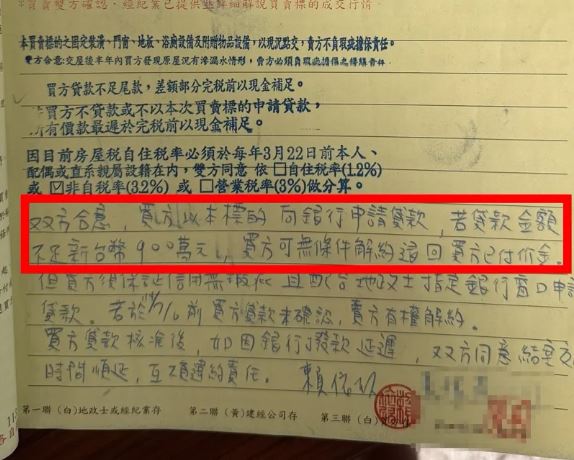 買賣雙方確認,經紀業已提供並詳細解說買賣標的成交行情。
本買賣標的之固定裝潢、門窗、地板、浴廁設備及附贈物品設備,以現況點交,賣方不負瑕疵擔保責任。
雙方合意:交屋後半年內買方發現原屋況有滲漏水情形,賣方必須負瑕疵擔保之修繕責任
買方貸款不足尾款,差額部分完稅前以現金補足。
買方不貸款或不以本次買賣標的申請貸款,
所有價款最遲於完稅前以現金補足。
因目前房屋稅自住稅率必須於每年3月22日前本人、
配偶或直系親屬設籍在內,雙方同意 依 □自住稅率(1.2%)
或 ☑非自稅率(3.2%) 或 □營業稅率(3%)做分算。
双方合意,買方以本標的向銀行申請貸款,若貸款金額
不足新台幣900萬元,買方可無條件解約退回買方已付价金。
但買方須保証信用無瑕疵且配合地政士指定銀行窗口申請
貸款,若於 前買方貸款未確認,賣方有權解約。
買方貸款核准後,如因銀行撥款延遲,双方同意結案交
時間順延,互不負違約責任。
第一聯 (白)地政士或經紀業存 第二聯 (黃)建經公司存 第三聯 (白)